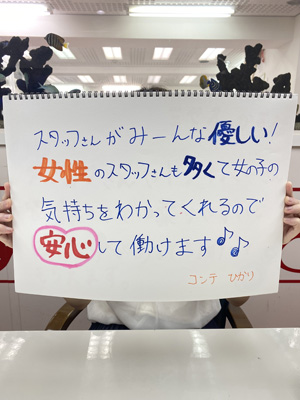 スタッフさんがみーんな優しい!
女性のスタッフさんも多くて女の子の
気持ちをわかってくれるので
安心して働けます♪♪
コンテ ひかり